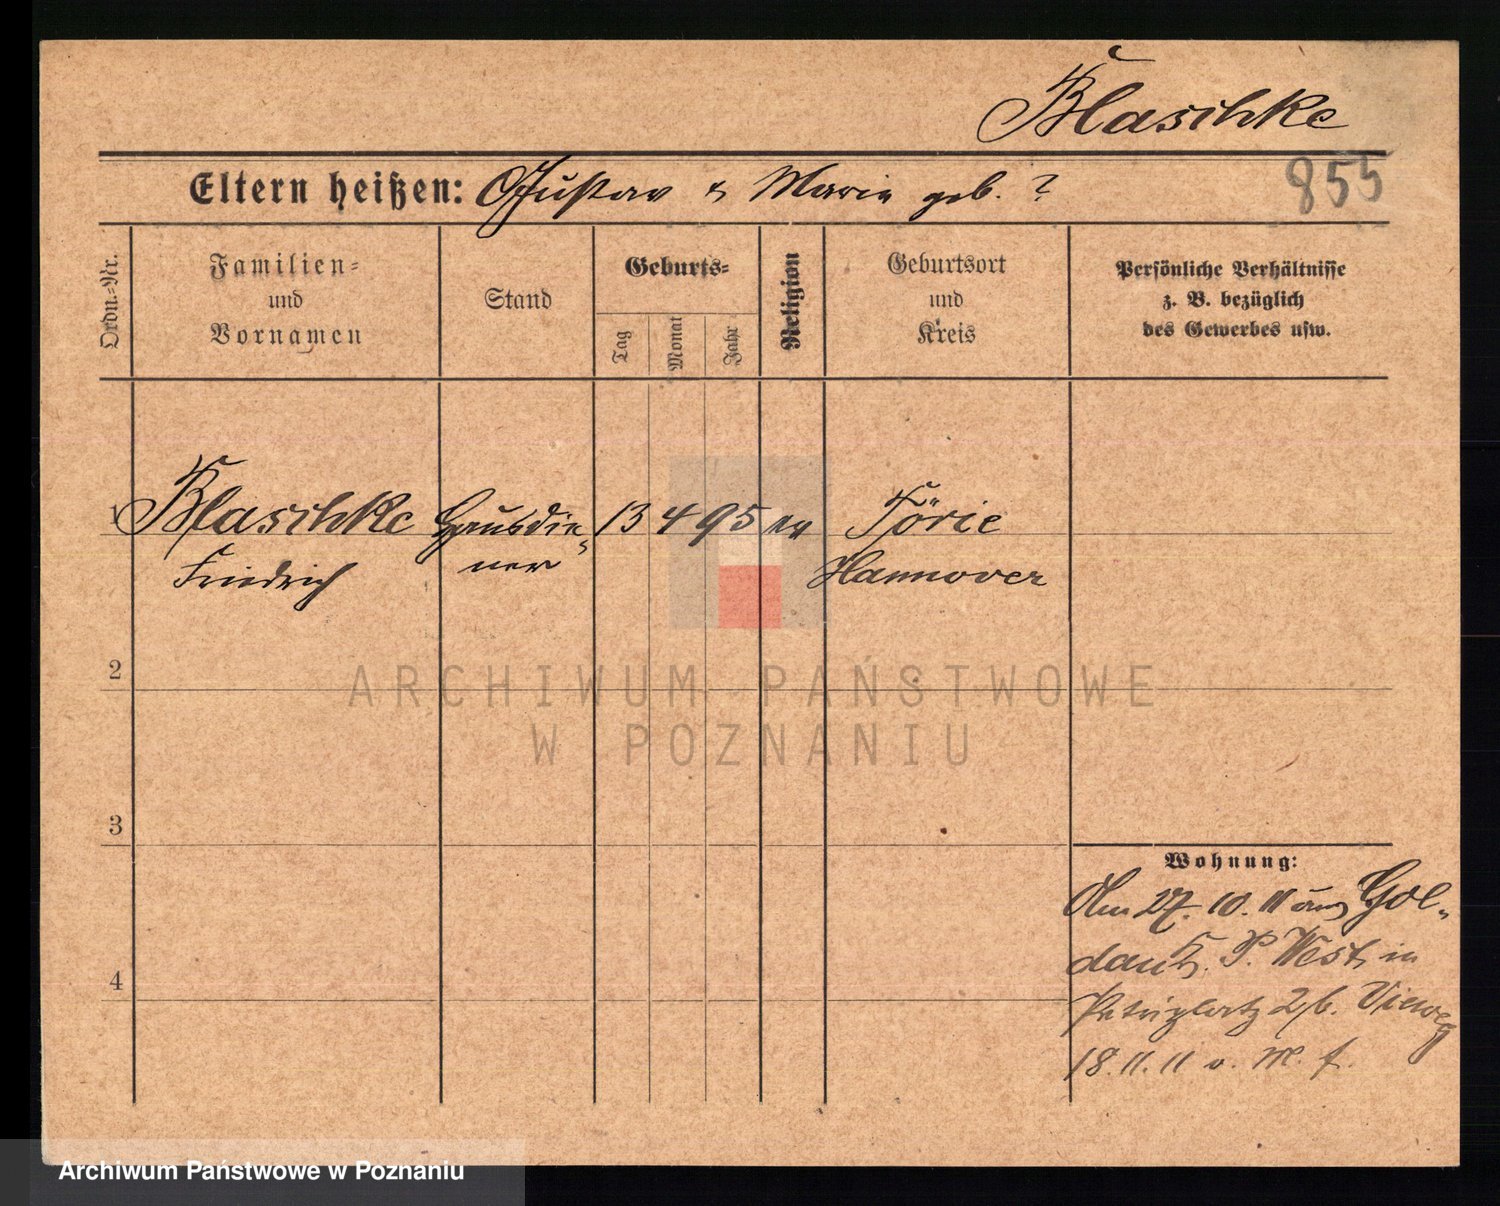 Blaschke
855
Eltern heißen: Gustav & Marie geb. ?
Ordn.-Nr.
Familien-
und
Vornamen
Stand
Geburts-
Tag
Monat
Jahr
Religion
Geburtsort
und
Kreis
Persönliche Verhältnisse
z. B. bezüglich
des Gewerbes usw.
1 Blaschke Hausdie- 13 4 95 ev Törie
Friedrich ner Hannover
2
ARCHIWUM PAŃSTWOWE
W POZNANIU
3
4
Wohnung:
Am 27. 10. 11 aus Gol-
P. West. in
Petriplatz 2 b. Vieweg
18. 11. 11 v. M. f.
Archiwum Państwowe w Poznaniu